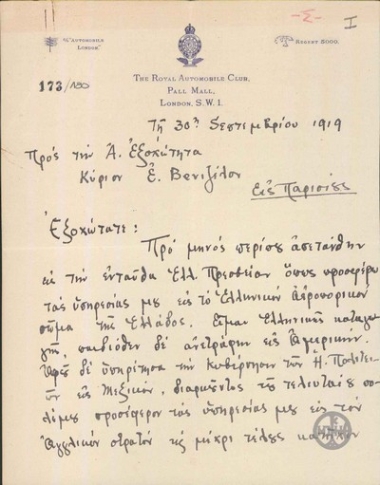 -Σ-
I
"AUTOMOBILE
LONDON"
REGENT 5000.
173/150
THE ROYAL AUTOMOBILE CLUB,
PALL MALL,
LONDON, S.W.1.
Τῇ 30ῃ Σεπτεμβρίου 1919
Πρὸς τὴν Α. Ἐξοχότητα
Κύριον Ε. Βενιζέλον
Εἰς Παρισίους
Ἐξοχώτατε:
Πρὸ μηνὸς περίπου ἀπετάνθην
εἰς τὴν ἐνταῦθα Ἑλλ. Πρεσβείαν ὅπως προσφέρω
τὰς ὑπηρεσίας μου εἰς τὸ Ἑλληνικὸν ἀεροπορικὸν
σῶμα τῆς Ἑλλάδος. Εἶμαι Ἑλληνικῆς καταγω
γῆς, παιδιόθεν δὲ ἀνετράφην εἰς Ἀμερικήν.
δὲ ὑπηρέτησα τὴν Κυβέρνησιν τῶν Η. Πολιτει-
ῶν εἰς Μεξικόν, διαρκοῦντος τοῦ τελευταίου πο-
λέμου προσέφερον τὰς ὑπηρεσίας μου εἰς τὸν
Ἀγγλικὸν στρατὸν ὡς μέχρι τέλους